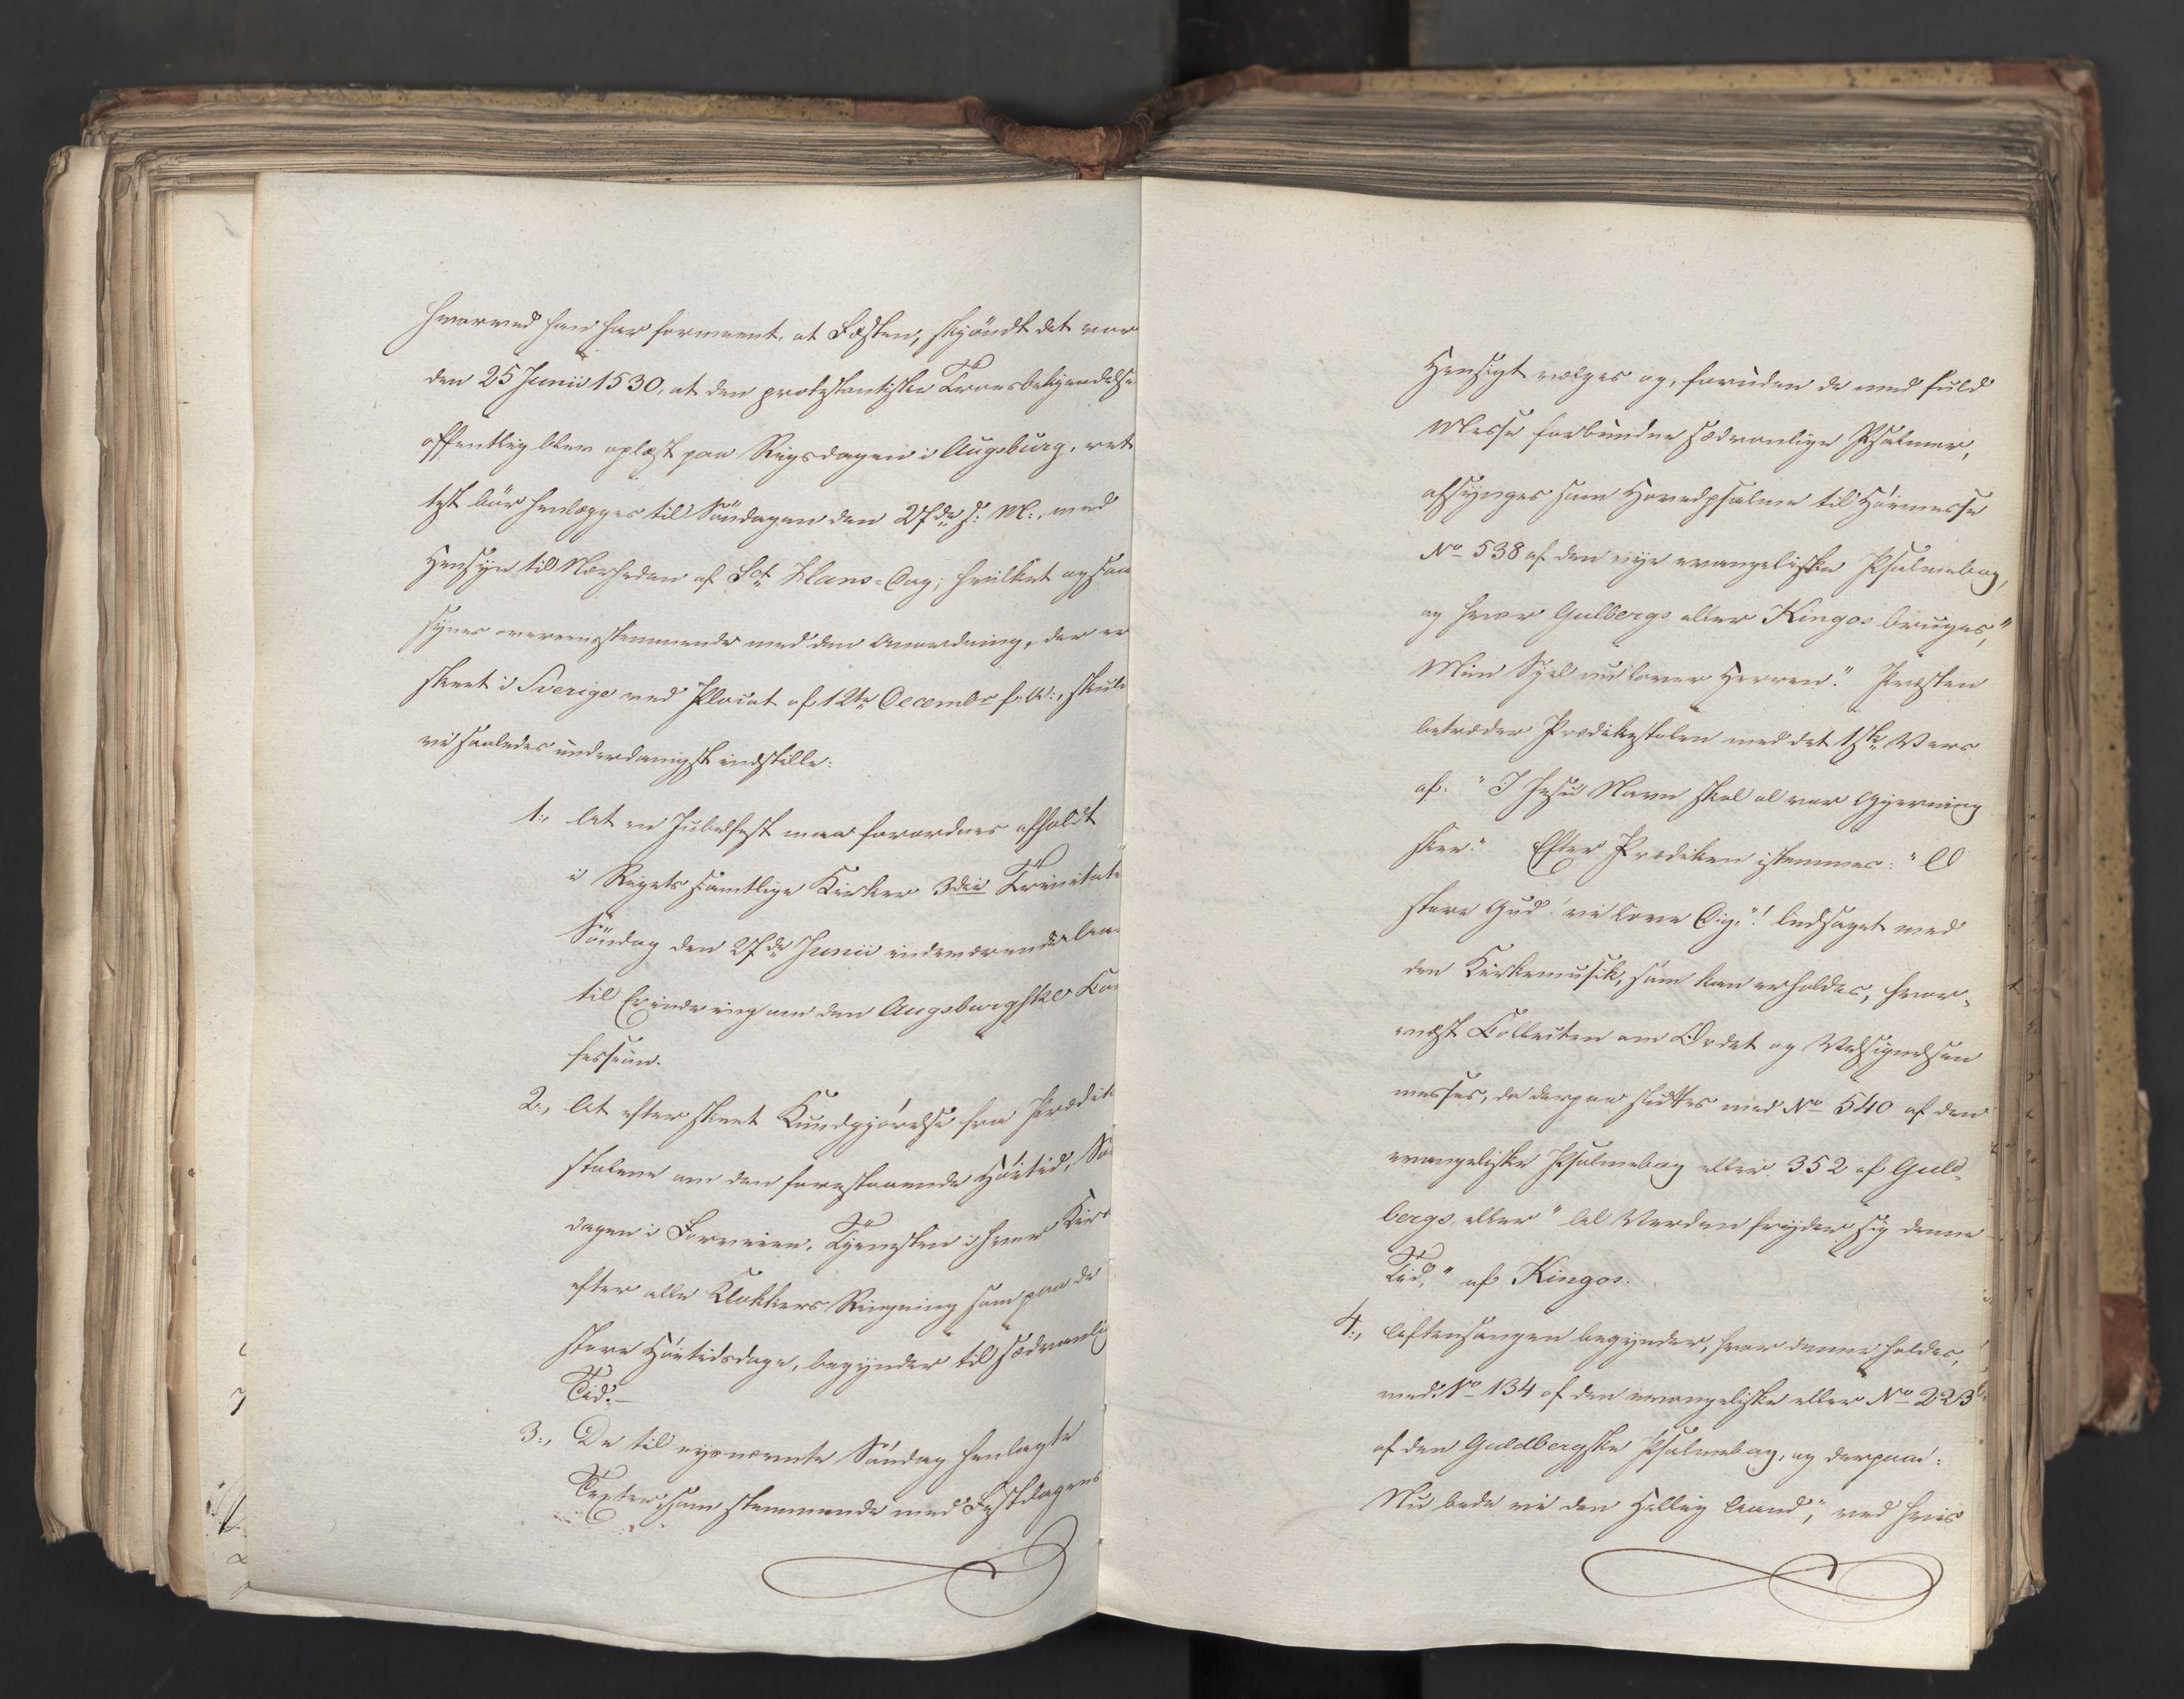 hvorved han har formeent, at Festen, skjöndt det var
den 25 Junii 1530, at den protestantiske Troesbekjendelse
offentlig blev oplæst paa Rigsdagen i Augsburg, ret
test bör henlægges til Söndagen den 27de s: M:, med
Hensyn til Nærheden af Sct Hans-Dag; hvilket ogsaa
synes overeensstemmende med den Anordning, der er
skeet i Sverige ved Placat af 12te Decembr f: A:, skulle
vi saaledes underdanigst indstille:
1:, At en Jubelfest maa forordnes afholdt
i Rigets samtlige Kirker 3die Trinitatis
Söndag den 27de Junii indeværende Aar
til Erindring om den Augsburgske Con
fession.
2:, At efter skeet Kundgjörelse fra Prædike
stolene om den forestaaende Höitid, Sön
dagen i Forveien, Tjenesten i hver Kirke
efter alle Klokkers Ringning som paa de
store Höitidsdage, begynder til sædvanlig
Tid.—
3:, De til nysnævnte Söndag henlagte
Texter, som stemmende med Festdagens
Hensigt vælges og, foruden de med fuld
Messe forbundne sædvanlige Psalmer,
afsynges som Hovedpsalme til Höimesse
No 538 af den nye evangeliske Psalmebog,
og hvor Gulbergs eller Kingos bruges, "
Min Sjel nu lover Herren." Præsten
betræder Prædikestolen med det 1ste Vers
af: "I Jesu Navn skal al vor Gjerning
skee." Efter Prædiken istemmes: "O
store Gud! vi love Dig,"! ledsaget med
den Kirkemusik, som kan erholdes, hvor-
næst Collecten om Ordet og Velsignelsen
messes, da derpaa sluttes med No 540 af den
evangeliske Psalmebog eller 352 af Guld-
bergs eller "Al Verden fryder sig denne
Tid," af Kingos.
4:, Aftensangen begynder, hvor denne holdes,
med No 134 af den evangeliske eller No 223
af den Guldbergske Psalmebog, og derpaa:
Nu bede vi den Hellig Aand", ved hvis